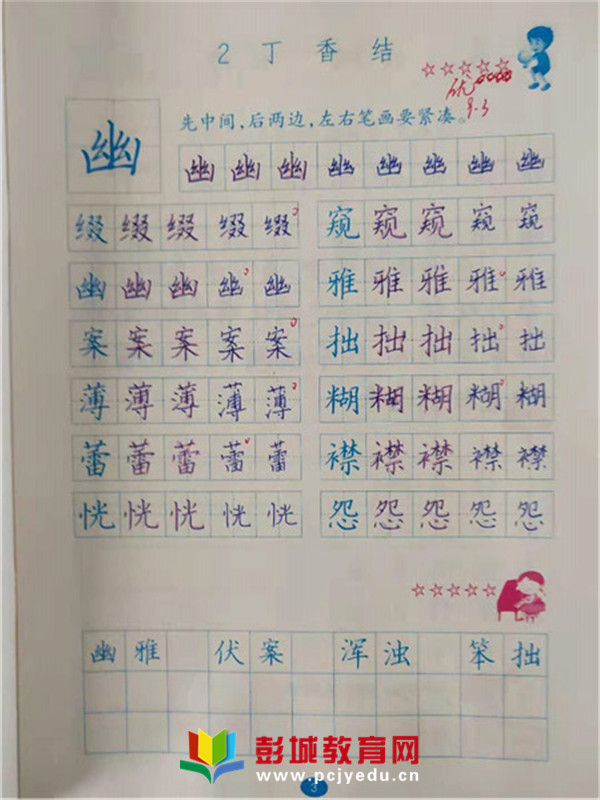 2 丁香结
优
9.3
先中间，后两边，左右笔画要紧凑。
幽
幽 幽 幽 幽 幽 幽 幽 幽
缀 缀 缀 缀 缀 窥 窥 窥 窥 窥
幽 幽 幽 幽 幽 雅 雅 雅 雅 雅
案 案 案 案 案 拙 拙 拙 拙 拙
薄 薄 薄 薄 薄 糊 糊 糊 糊 糊
蕾 蕾 蕾 蕾 蕾 襟 襟 襟 襟 襟
恍 恍 恍 恍 恍 怨 怨 怨 怨 怨
幽雅 伏案 浑浊 笨拙
彭城教育网
www.pcjyedu.cn
3